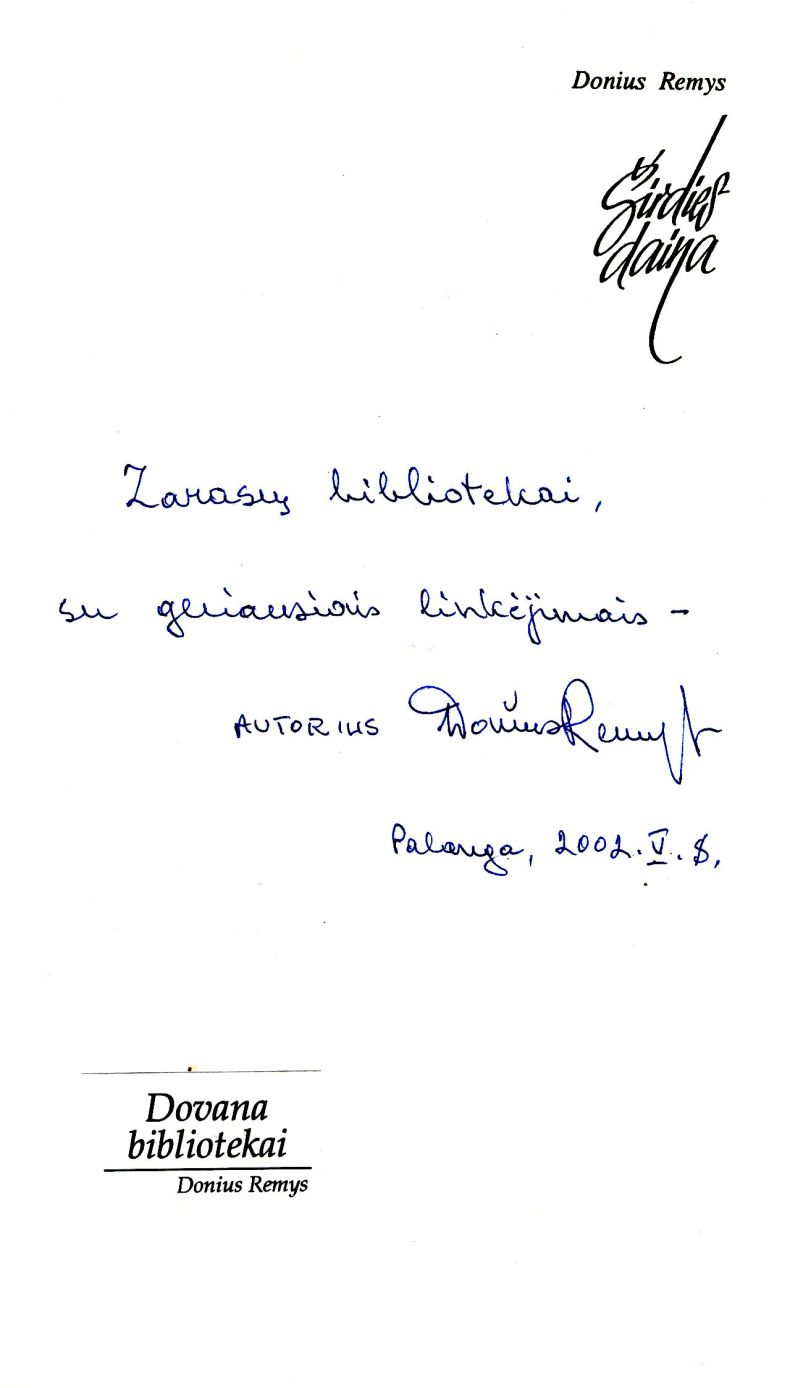 Donius Remys
Širdies
daina
Zarasų bibliotekai,
su geriausiais linkėjimais –
AUTORIUS Donius Remys
Palanga, 2002.V.8.
Dovana
bibliotekai
Donius Remys